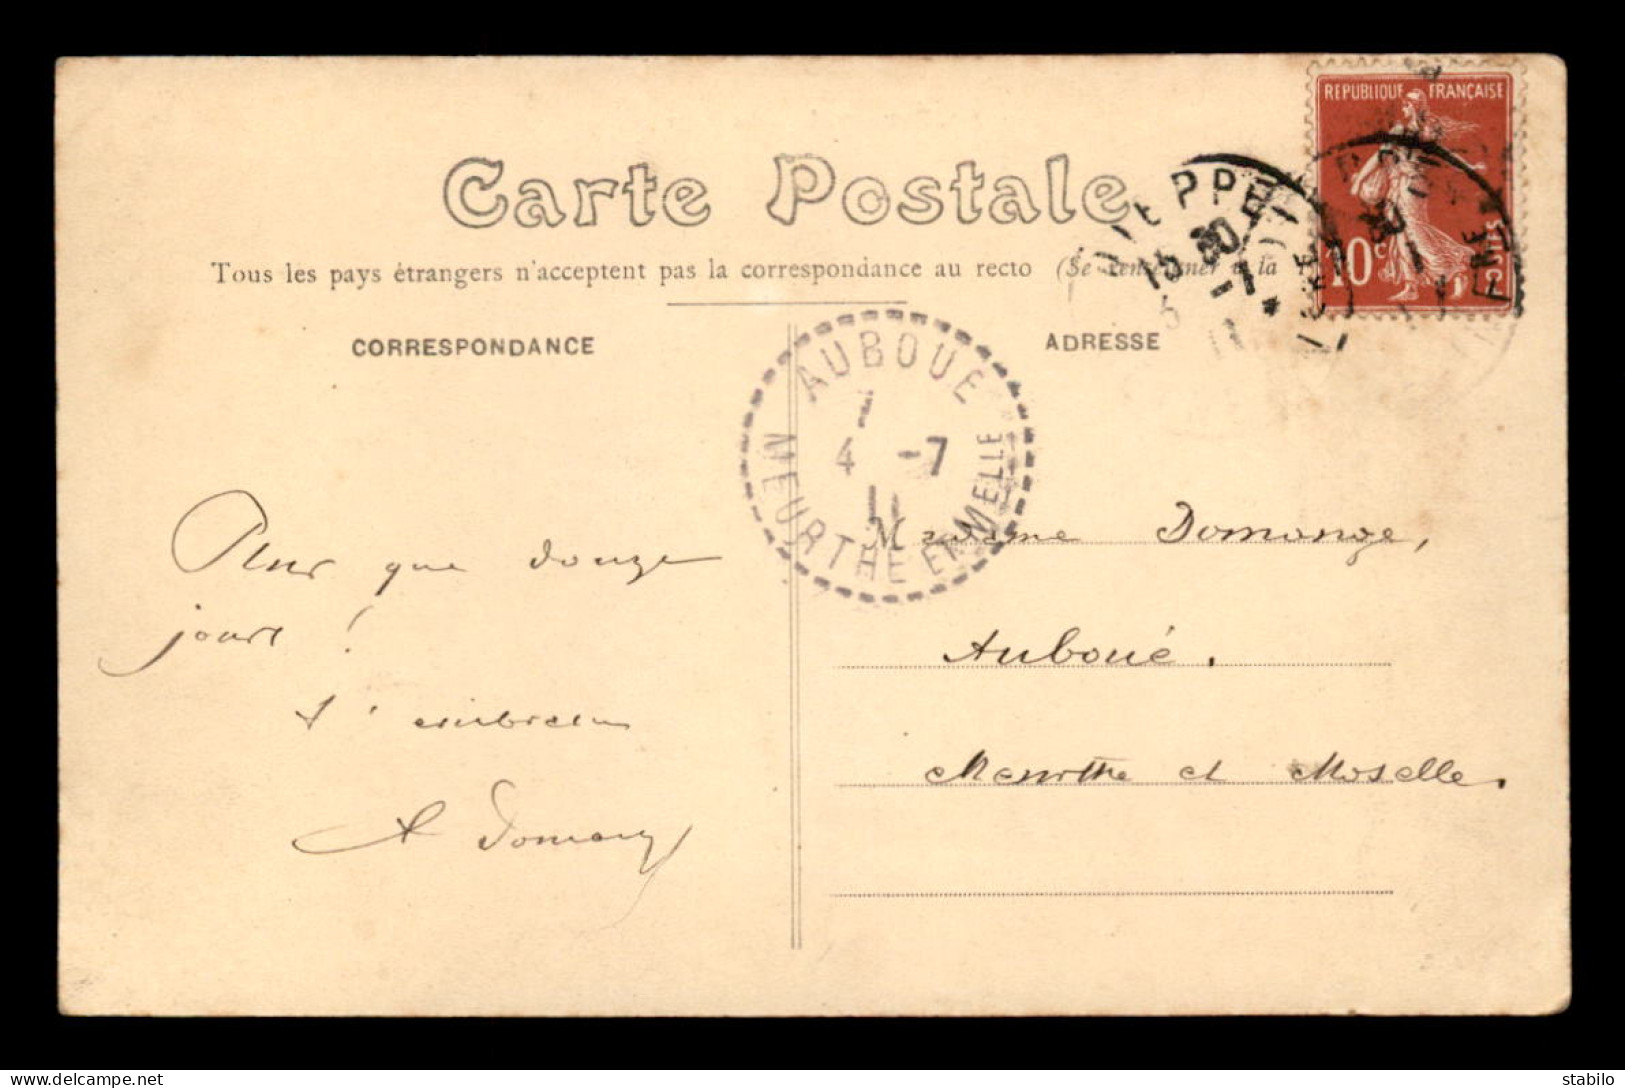 REPUBLIQUE FRANÇAISE
10c
Carte Postale
DIEPPE
15 30
-7
Tous les pays étrangers n'acceptent pas la correspondance au recto (Se renseigner à la
CORRESPONDANCE
ADRESSE
AUBOUE
4 -7
11
MEURTHE ET MELLE
Plus que douze
jours !
Madame Domange,
Auboué.
Meurthe et Moselle.
A Domange
delcampe.net
stabilo